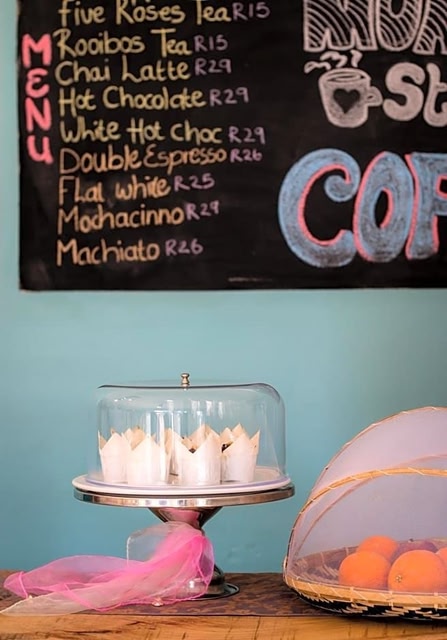 MENU
Five Roses Tea R15
Rooibos Tea R15
Chai Latte R29
Hot Chocolate R29
White Hot choc R29
Double Espresso R26
Flat white R25
Mochacinno R29
Machiato R26
St
COF